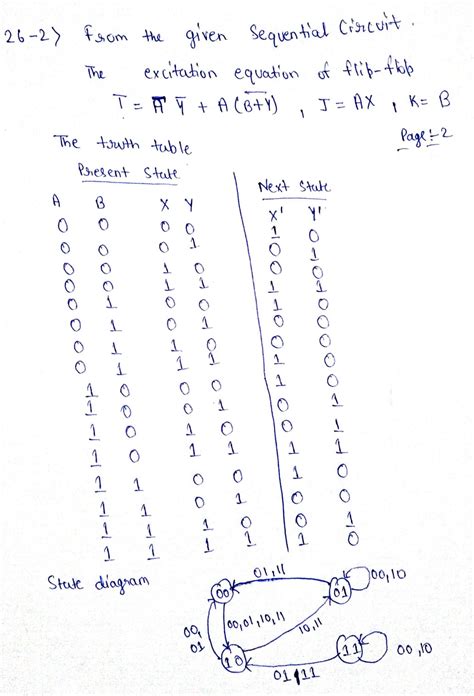 26-2) From the given Sequential Circuit.
The excitation equation of flip-flop
T = A̅ Y̅ + A(B̅+̅Y̅) , J = AX , K = B
Page:-2
The truth table
Present State Next State
A B X Y X' Y'
0 0 0 0 1 0
0 0 0 1 0 1
0 0 1 0 0 0
0 0 1 1 1 1
0 1 0 0 1 0
0 1 0 1 0 0
0 1 1 0 0 0
0 1 1 1 1 0
1 0 0 0 1 0
1 0 0 1 0 1
1 0 1 0 0 1
1 0 1 1 1 1
1 1 0 0 1 0
1 1 0 1 0 0
1 1 1 0 0 1
1 1 1 1 1 0
State diagram
01,11
00 01 00,10
00,01,10,11 10,11
00,
01
10 11 00,10
01,11